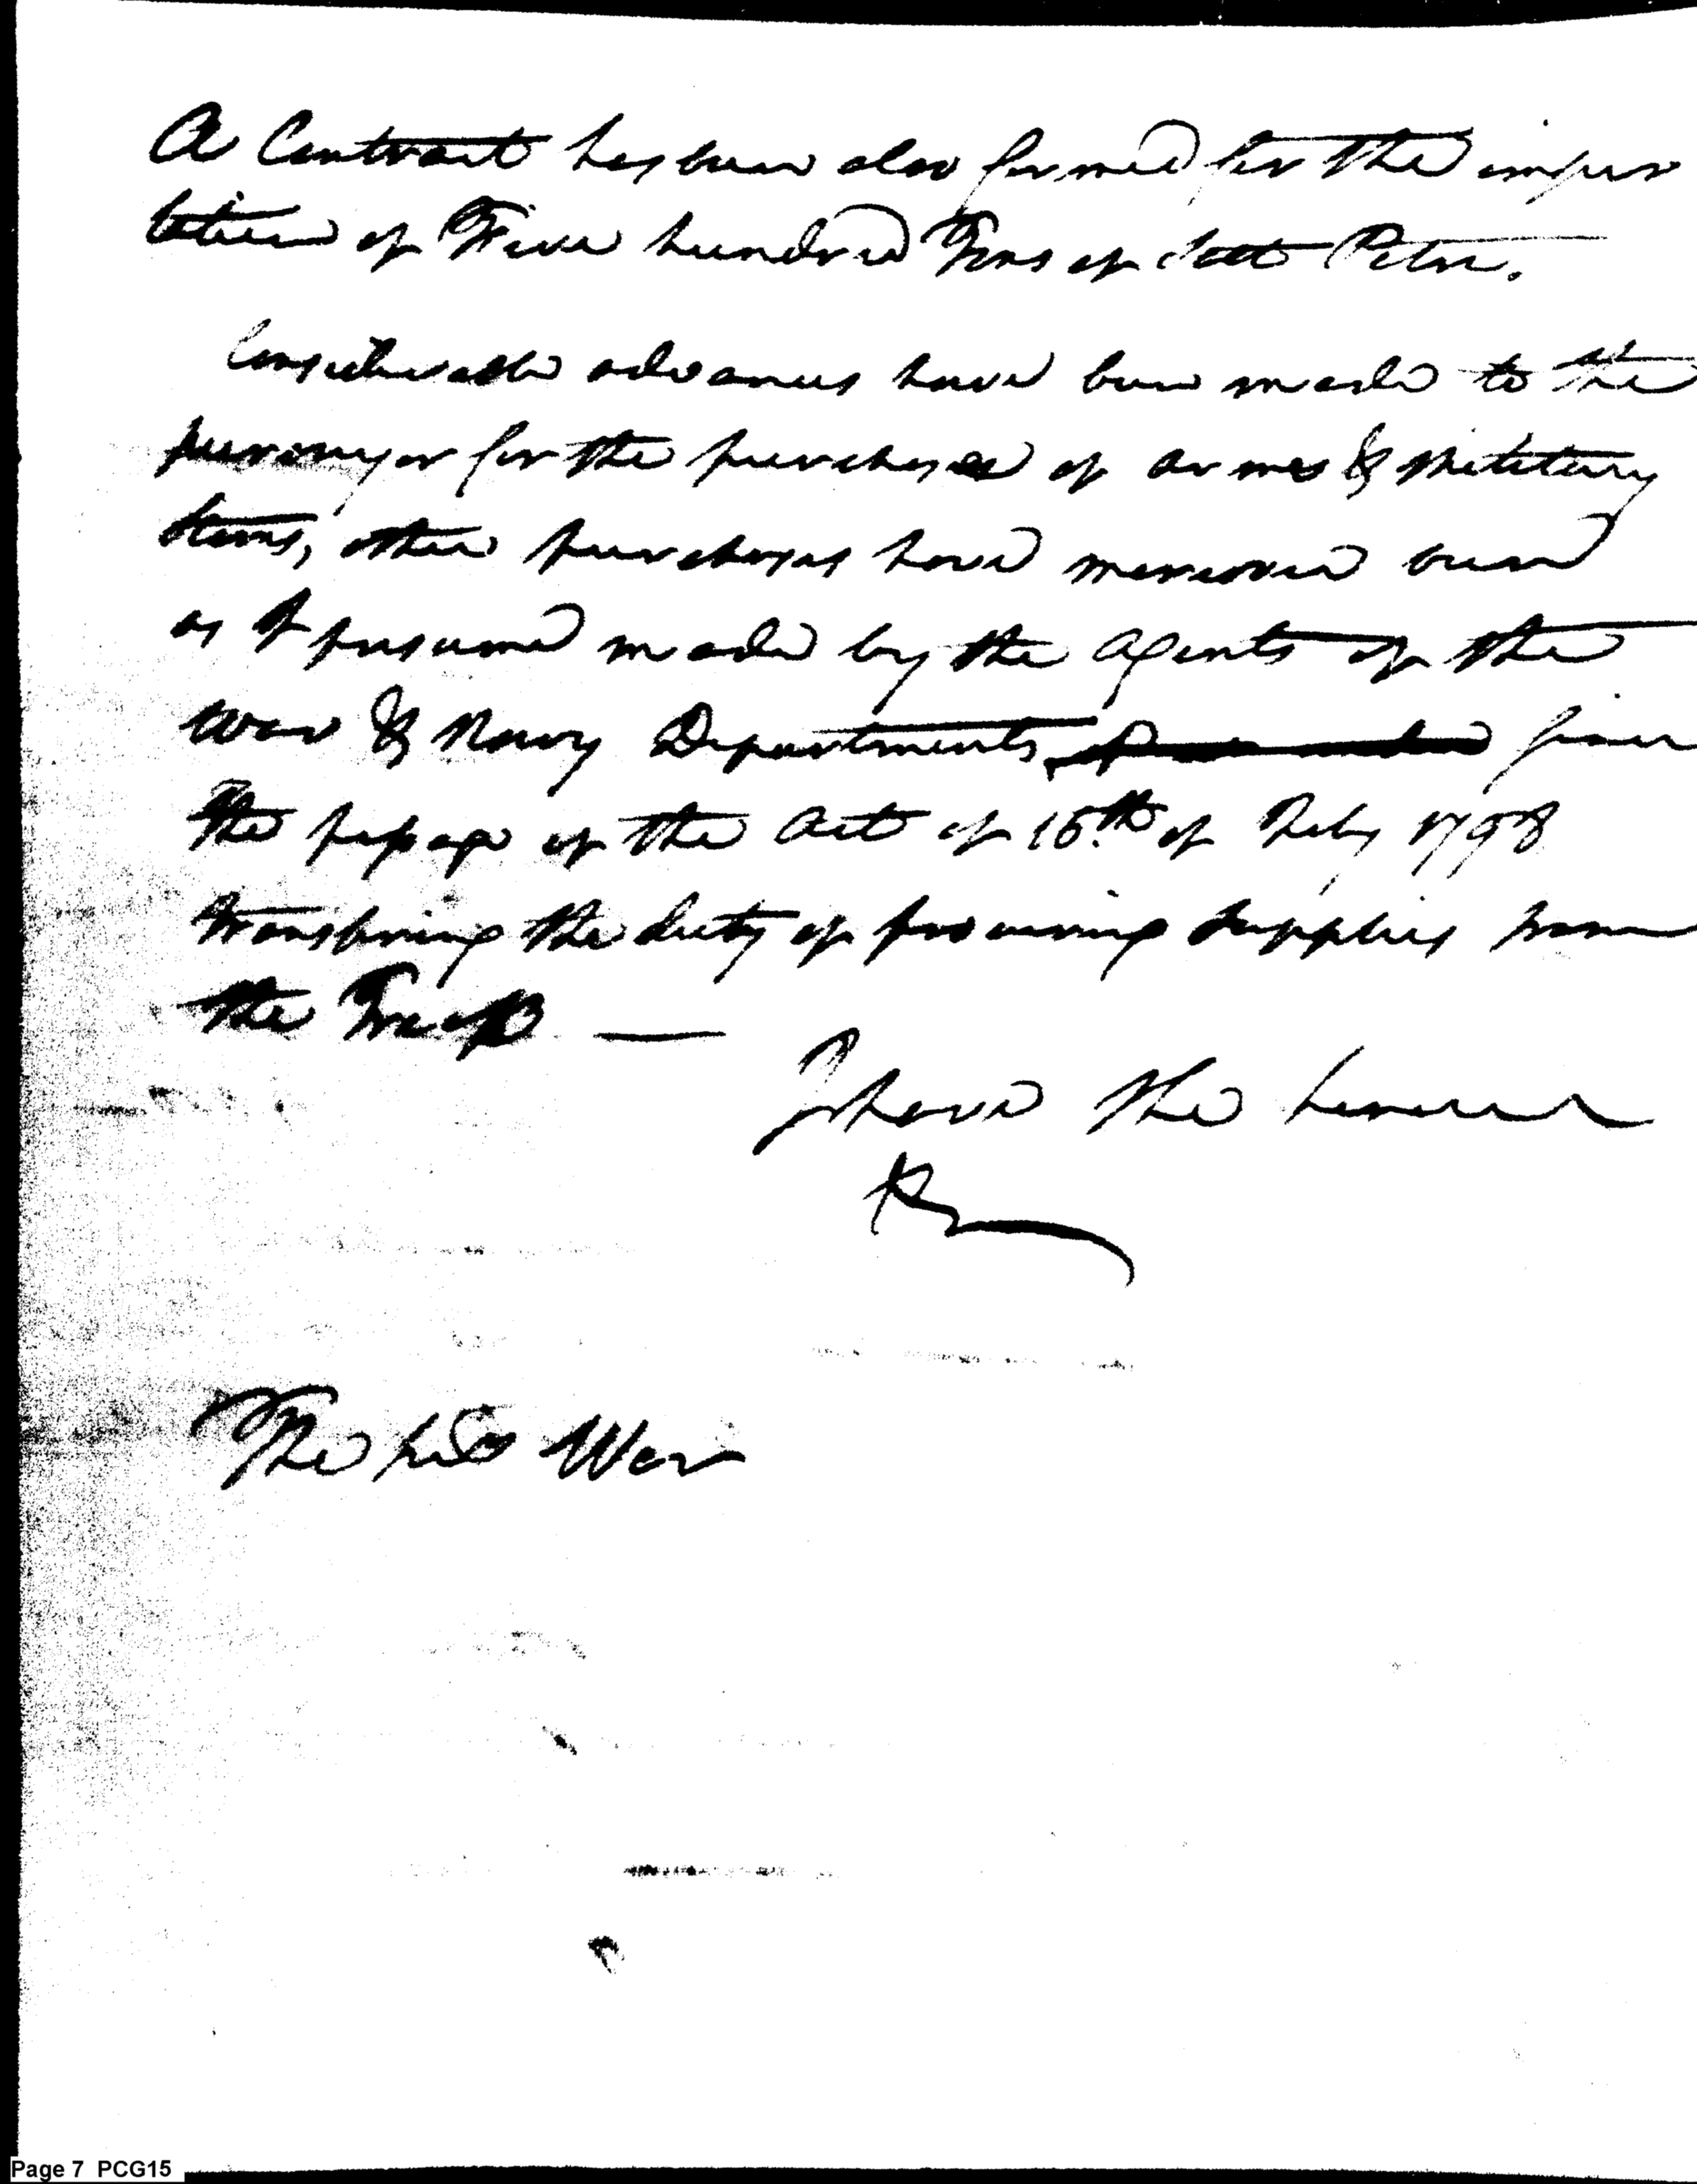 A Contract has been also formed for the impor
tation of Five hundred Tons of Salt Petre.
Considerable advances have been made to the
purveyor for the purchase of arms & Military
Stores, other purchases have moreover been
as I presume made by the Agents of the
War & Navy Departments, since
the passage of the Act of 16th of July 1798
transfering the duty of procuring Supplies from
the Treasy —
I have the honour
The Secy War
Page 7 PCG15